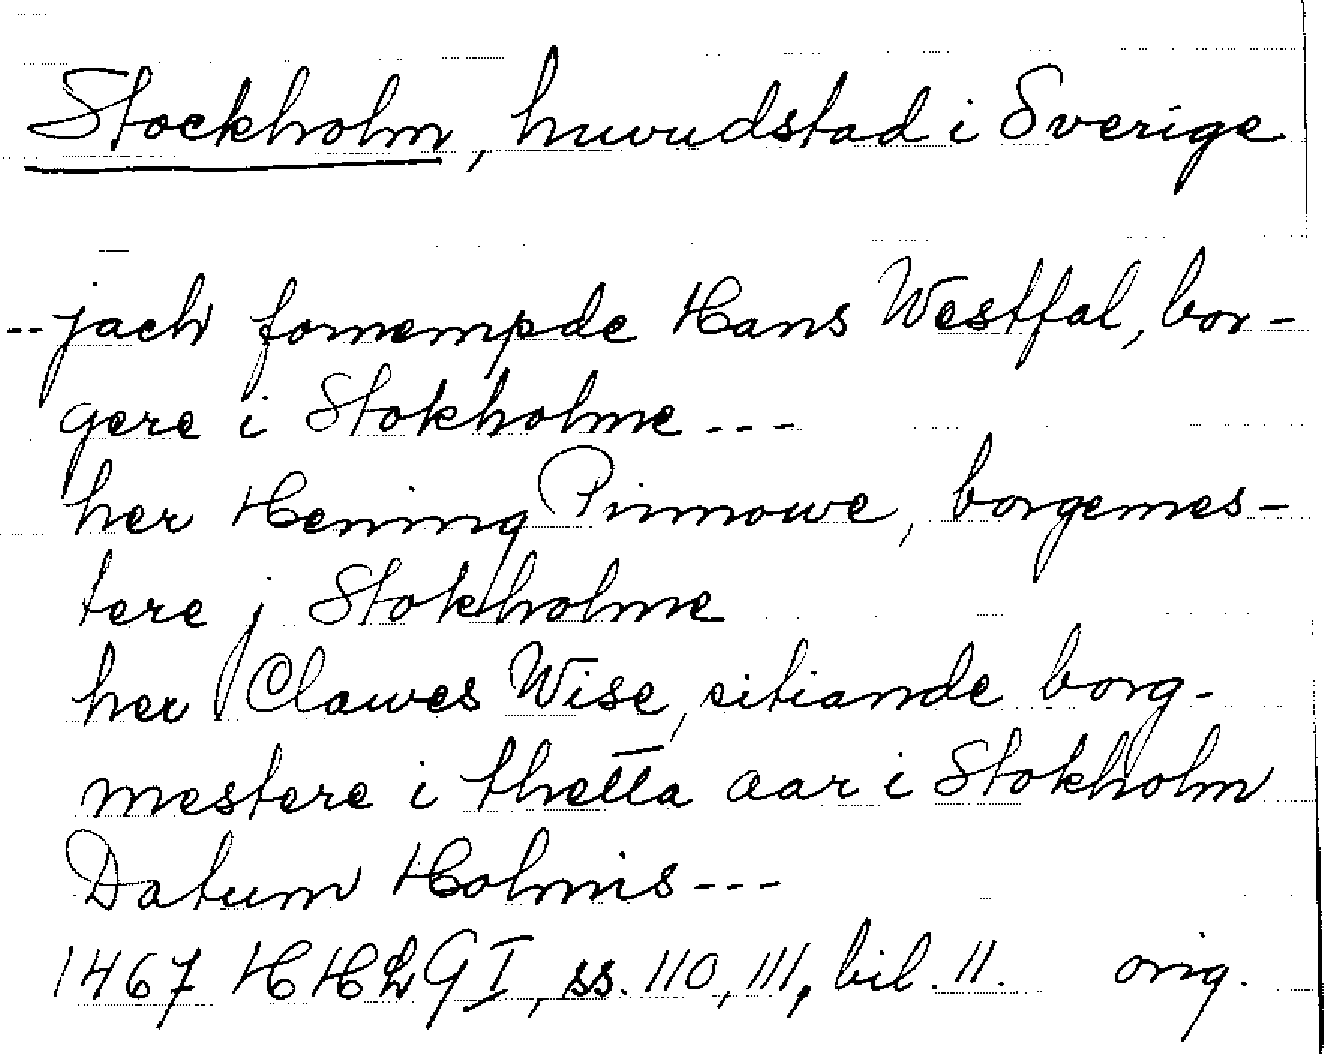 Stockholm, huvudstad i Sverige
--jach fornempde Hans Westfal, bor-
gere i Stokholme---
her Hening Pinnowe, borgemes-
tere j Stokholme
her Clawes Wise, sitiande borg-
mestere i thetta aar i Stokholm
Datum Holmis---
1467 HHLG I, ss. 110, 111, bil. 11. orig.